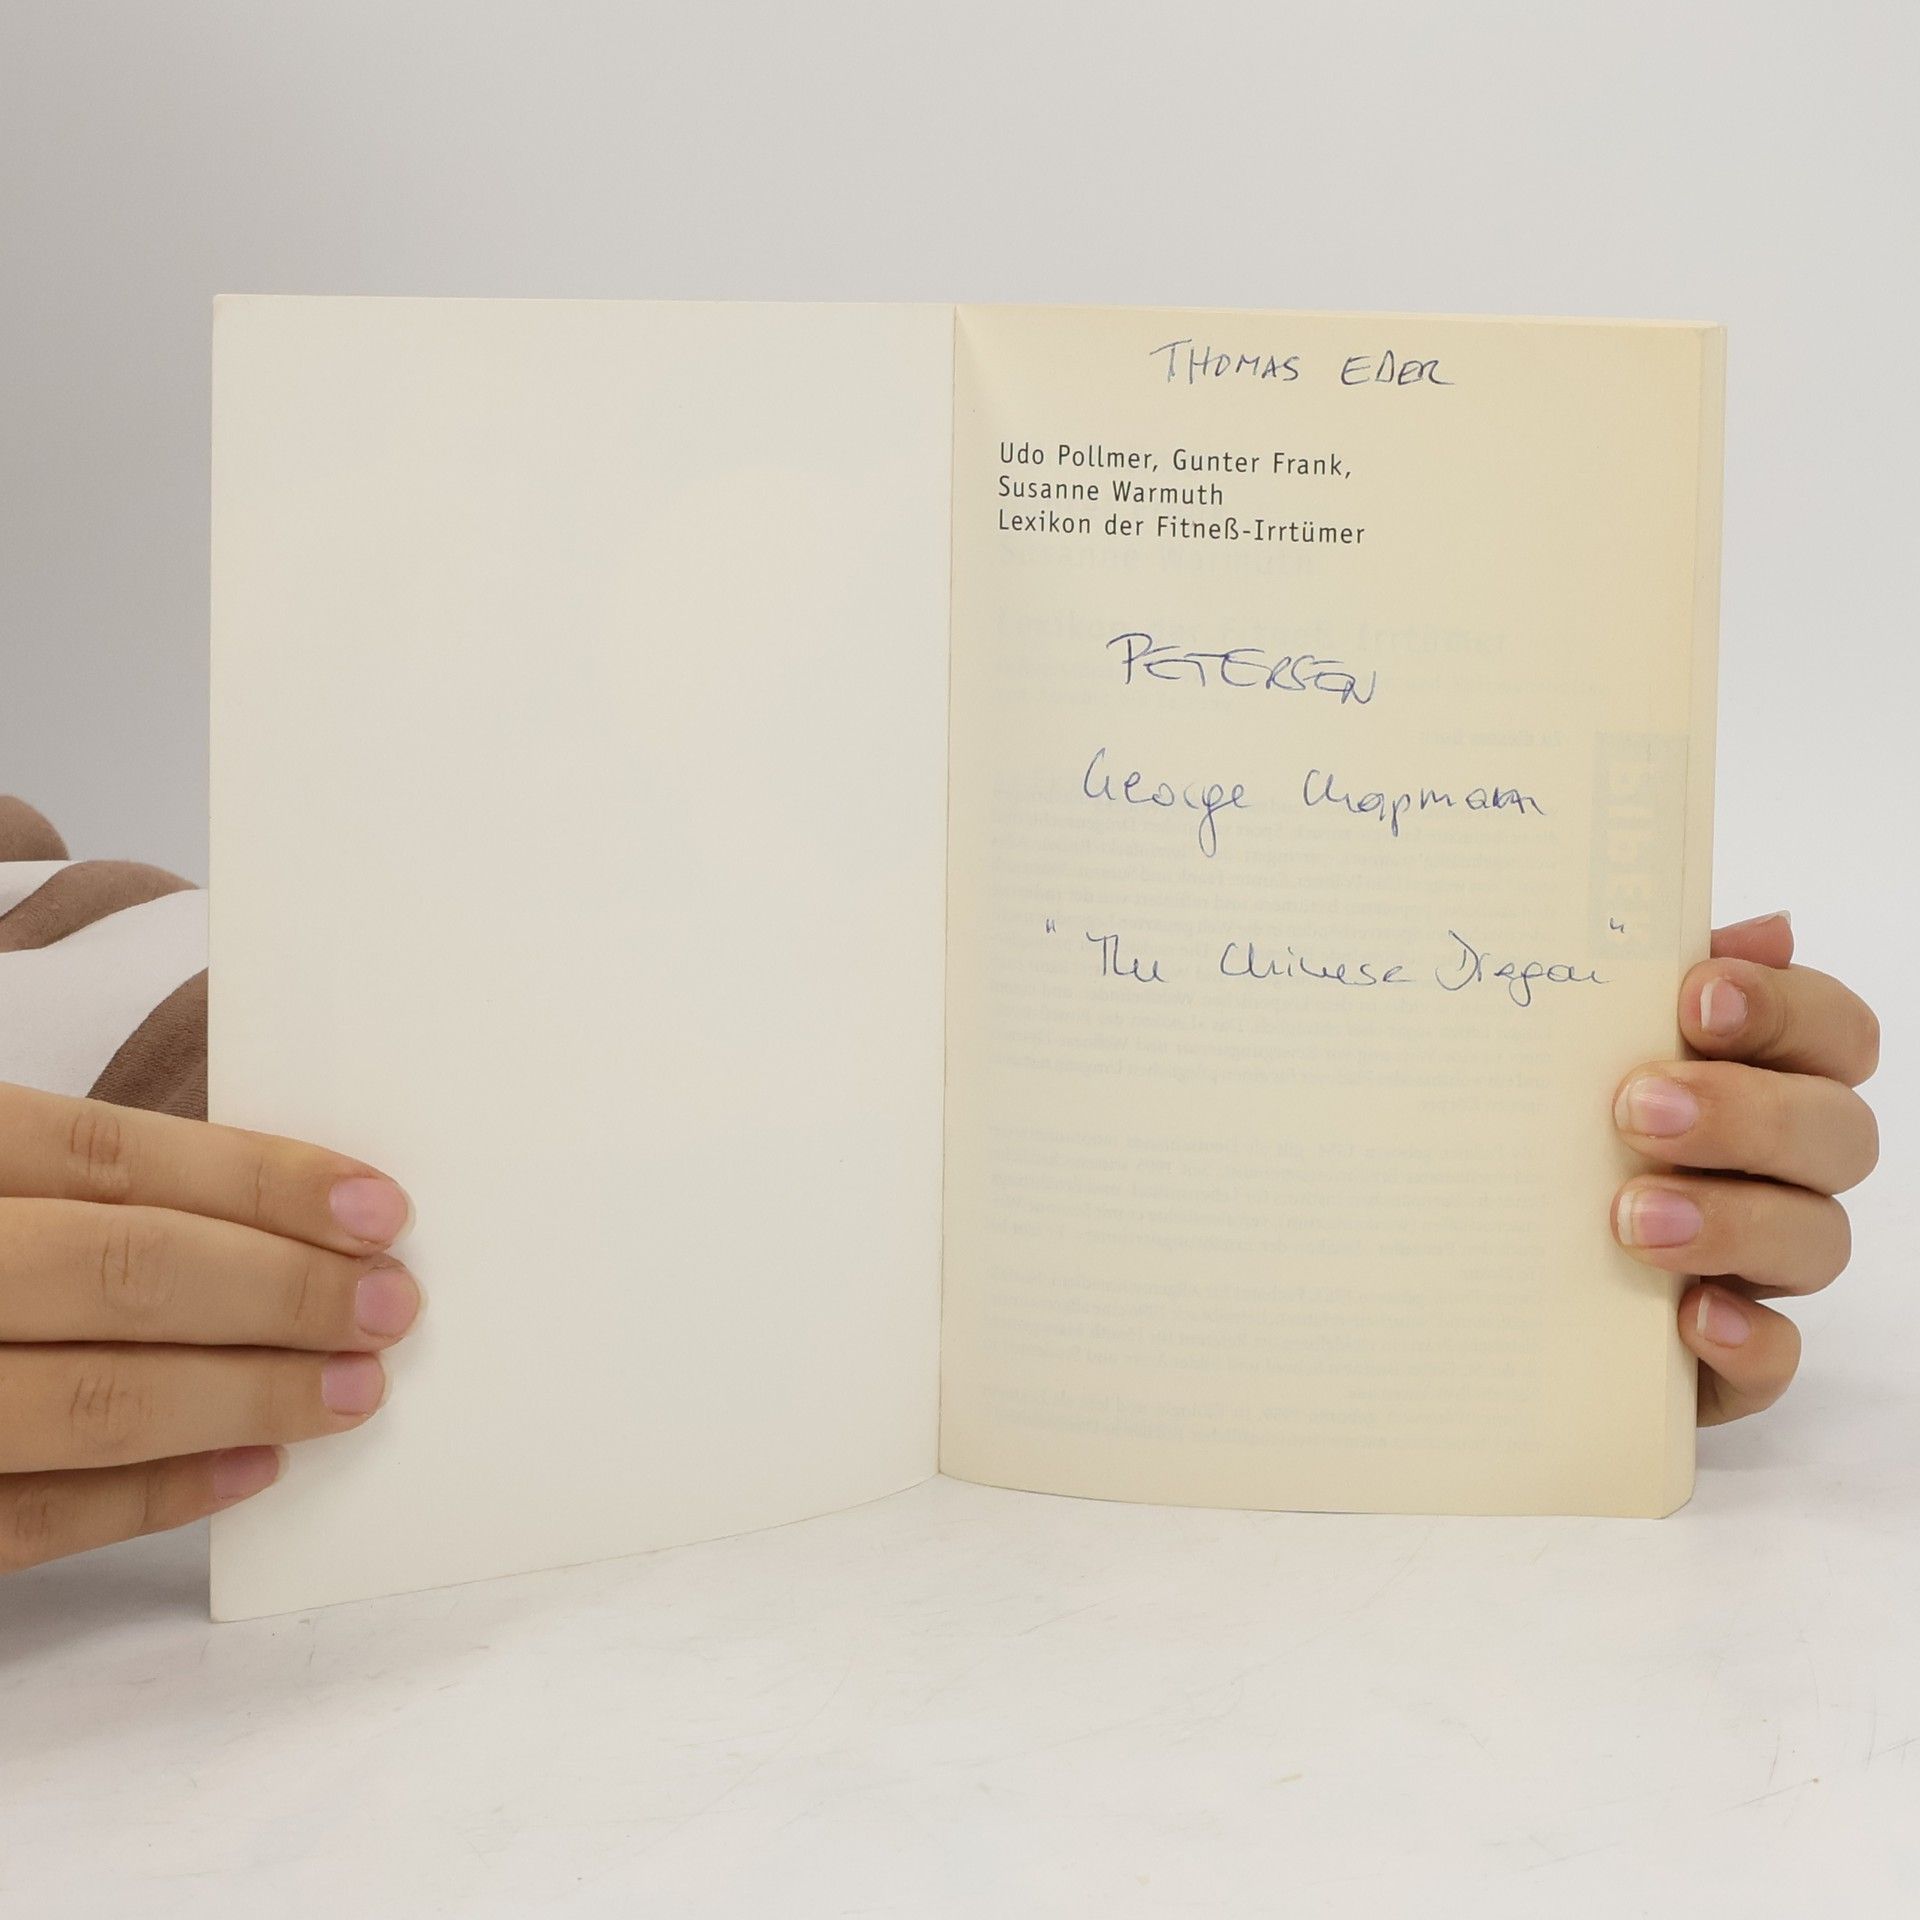 THOMAS EDER
Udo Pollmer, Gunter Frank,
Susanne Warmuth
Lexikon der Fitneß-Irrtümer
PETERSEN
George Chapmann
"The Chinese Dragon"